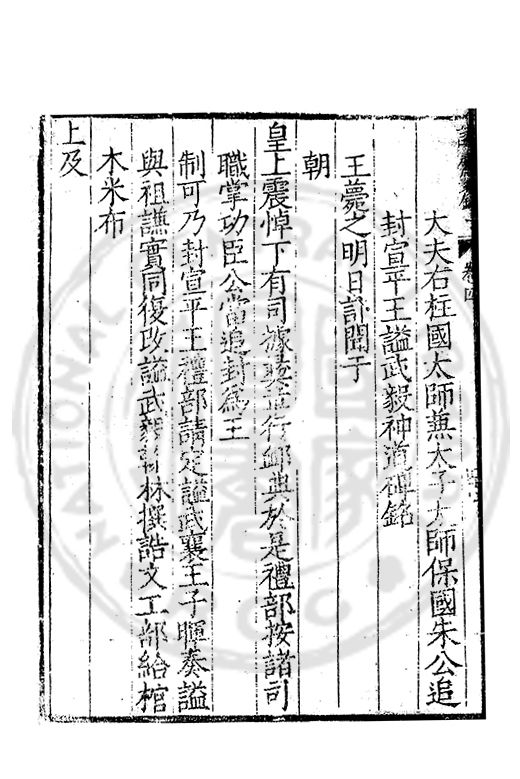 大夫右柱國太師兼太子太師保國朱公追
封宣平王謚武毅神道碑銘
王薨之明日訃聞于
朝
皇上震悼下有司據彞並行卹典於是禮部按諸司
職掌功臣公當追封爲王
制可乃封宣平王禮部請定謚武襄王子暉奏謚
與祖諱實同復改謚武毅翰林撰誥文工部給棺
木米布
上及
卷四